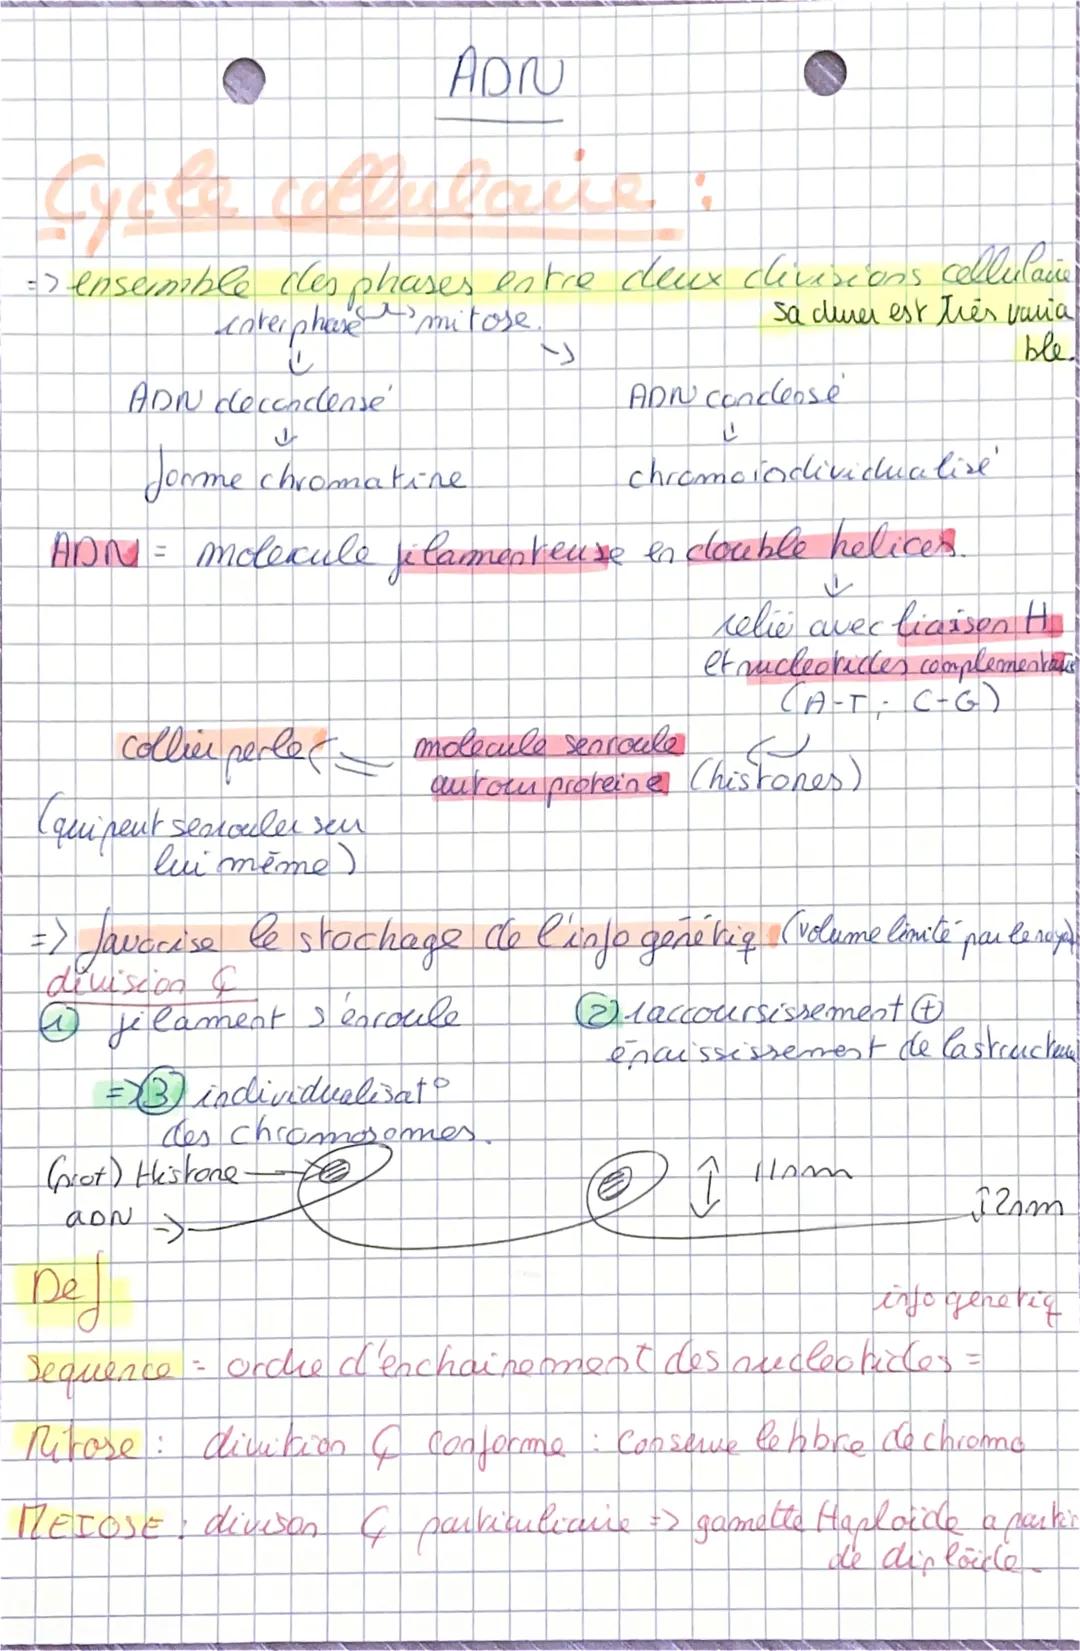 ADN
Cycle cellulaire :
=> ensemble des phases entre deux divisions cellulaire
interphase <-> mitose.
sa duree est très varia
ble.
ADN decondensé
ADN condensé
↓
↓
forme chromatine
chromoindividualisé
ADN = molecule filamenteuse en double helices.
↓
relié avec liaison H
et nucleotides complementaire
(A-T; C-G)
collier perle <= molecule senroule
autour proteine (histones)
(qui peut senrouler seu
lui même)
=> favorise le stockage de l'info génétiq (volume limité par le noyau)
division Ç
① filament s'enroule
② raccoursissement ⊕
épaississement de la structure
=> ③ individualisat°
des chromosomes.
(prot) Histone
11nm
ADN
↕2nm
Def
info genetiq
Sequence = ordre d'enchainement des nucleotides =
Mitose : divition Ç conforme : conserve le nbre de chromo
MEIOSE : divison Ç particuliaire => gamette Haploïde a partir
de diploïde.